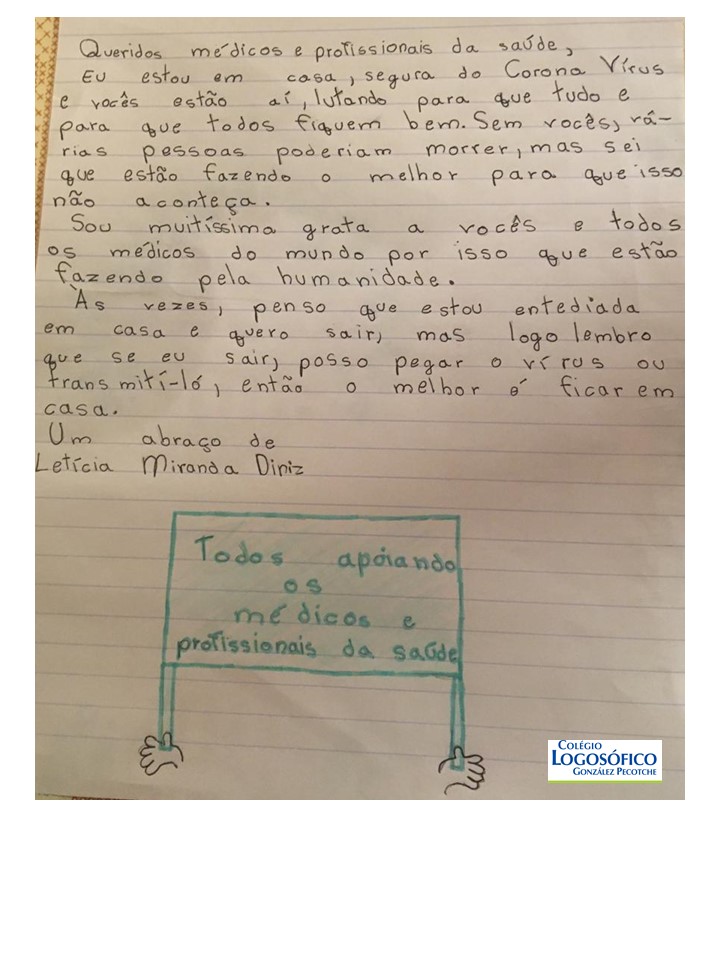 Queridos médicos e profissionais da saúde,
Eu estou em casa, segura do Corona Vírus
e vocês estão aí, lutando para que tudo e
para que todos fiquem bem. Sem vocês, vá-
rias pessoas poderiam morrer, mas sei
que estão fazendo o melhor para que isso
não aconteça.
Sou muitíssima grata a vocês e todos
os médicos do mundo por isso que estão
fazendo pela humanidade.
Às vezes, penso que estou entediada
em casa e quero sair, mas logo lembro
que se eu sair, posso pegar o vírus ou
transmití-ló, então o melhor é ficar em
casa.
Um abraço de
Letícia Miranda Diniz
Todos apóiando
os
médicos e
profissionais da saúde
COLÉGIO
LOGOSÓFICO
GONZÁLEZ PECOTCHE